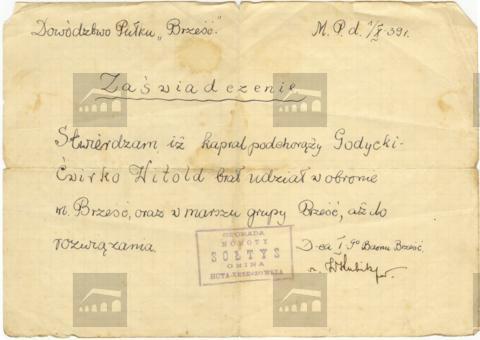 Dowództwo Pułku „Brześć" M. P. d. 1/X 39 r.
Zaświadczenie
Stwierdzam, iż kapral podchorąży Godycki-
Ćwirko Witold brał udział w obronie
m. Brześć, oraz w marszu grupy Brześć, aż do
rozwiązania
GROMADA
SOŁTYS
GMINA
D-ca Baonu Brześć